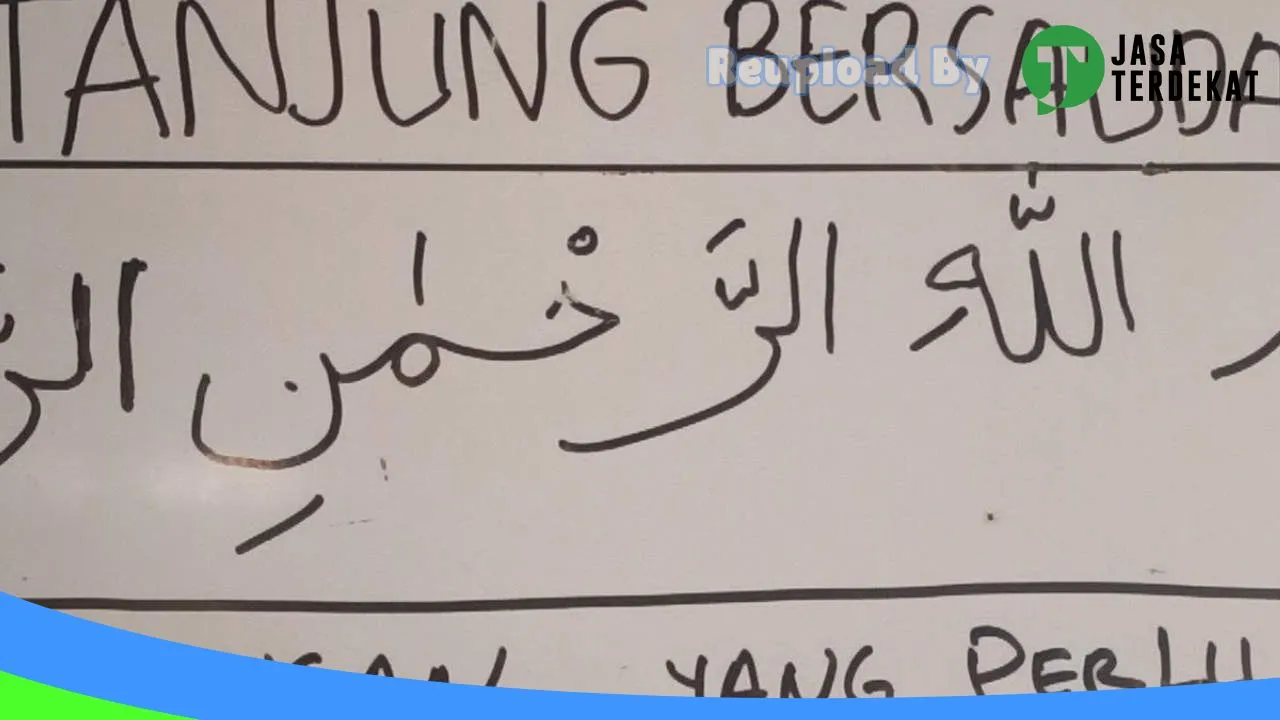 TANJUNG BERSAUDA
Reupload By
JASA
TERDEKAT
اللّٰهِ الرَّحْمٰنِ
YANG PERLU